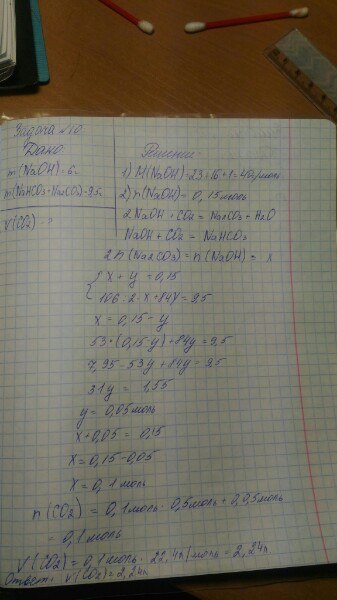 Задача №10.
Дано:
m(NaOH)=6г
m(NaHCO3+Na2CO3)=9,5г
V(CO2) - ?
Решение
1) M(NaOH)=23+16+1=40г/моль
2) n(NaOH)= 0,15моль
2NaOH + CO2 = Na2CO3 + H2O
NaOH + CO2 = NaHCO3
2n(Na2CO3) = n(NaOH) = x
{ x + y = 0,15
106 : 2 · x + 84y = 9,5
x = 0,15 - y
53 · (0,15-y) + 84y = 9,5
7,95 - 53y + 84y = 9,5
31y = 1,55
y = 0,05моль
x + 0,05 = 0,15
x = 0,15 - 0,05
x = 0,1моль
n(CO2) = 0,1моль · 0,5моль + 0,05моль
= 0,1моль
V(CO2) = 0,1моль · 22,4л/моль = 2,24л
Ответ: V(CO2) = 2,24л